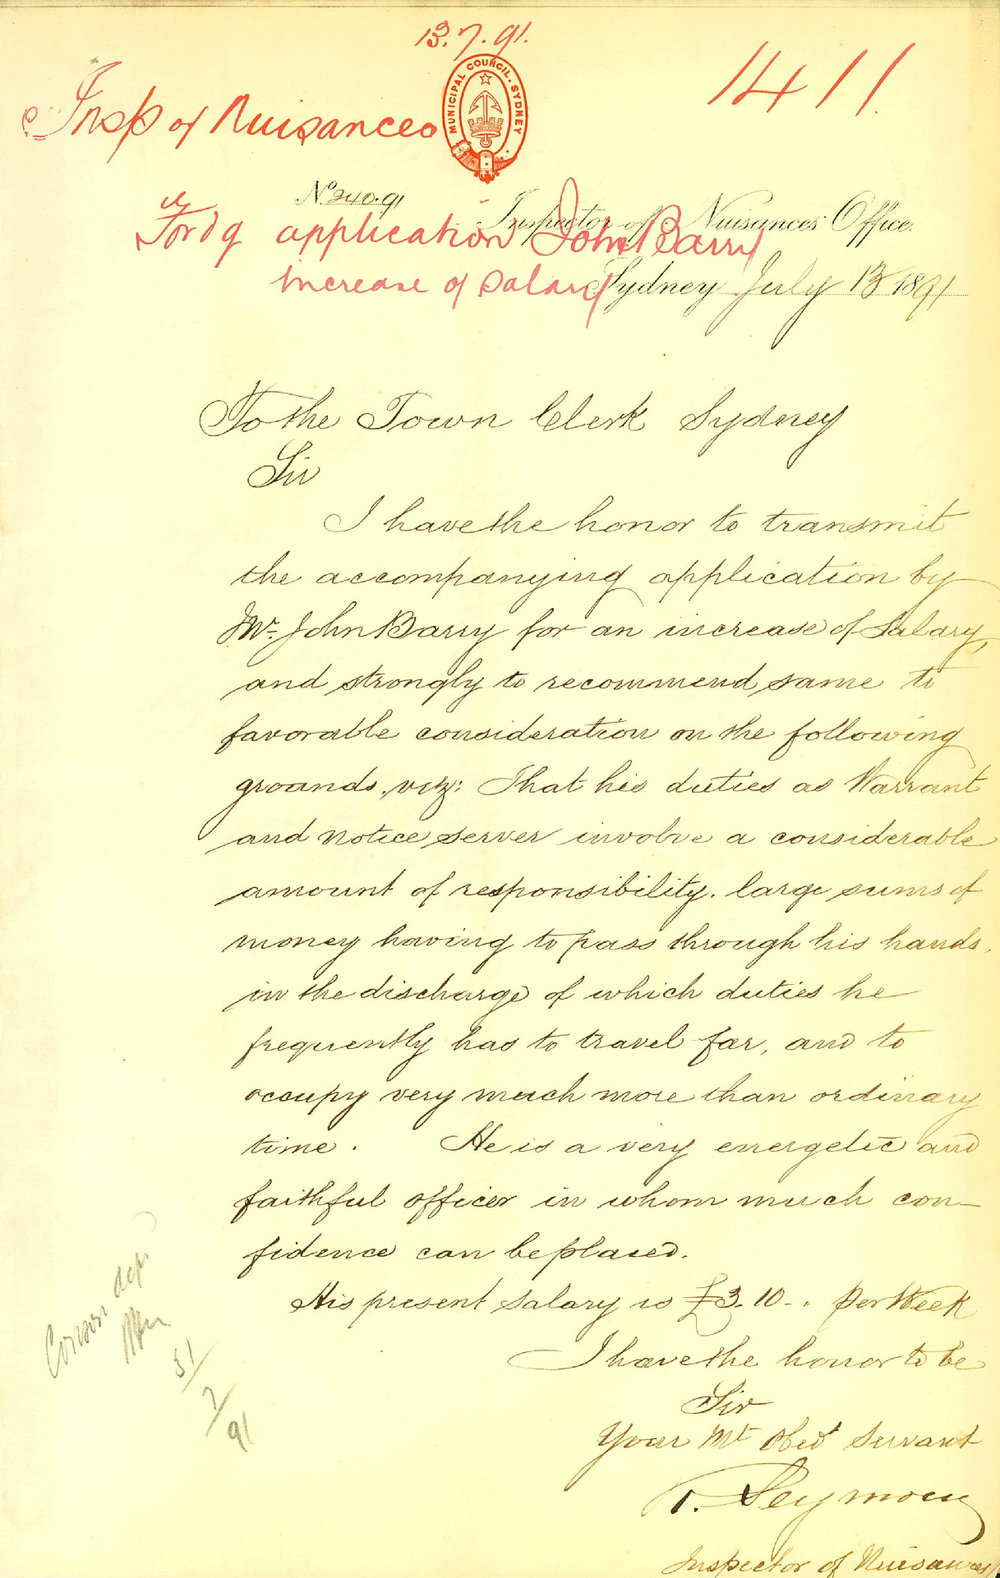 13.7.91.
1411
MUNICIPAL COUNCIL. SYDNEY.
Insp of Nuisances
No. 240.91
Inspector of Nuisances Office.
Fordg application John Barry
increase of salary
Sydney July 13 1891
To the Town Clerk Sydney
Sir
I have the honor to transmit
the accompanying application by
Mr. John Barry for an increase of Salary,
and strongly to recommend same to
favorable consideration on the following
grounds, viz: That his duties as Warrant
and notice server involve a considerable
amount of responsibility. large sums of
money having to pass through his hands.
in the discharge of which duties he
frequently has to travel far, and to
occupy very much more than ordinary
time. He is a very energetic and
faithful officer in whom much con-
fidence can be placed.
His present salary is £3.10-. per Week
I have the honor to be
Sir
Your Mt Obedt Servant
T. Seymour
Inspector of Nuisances
91